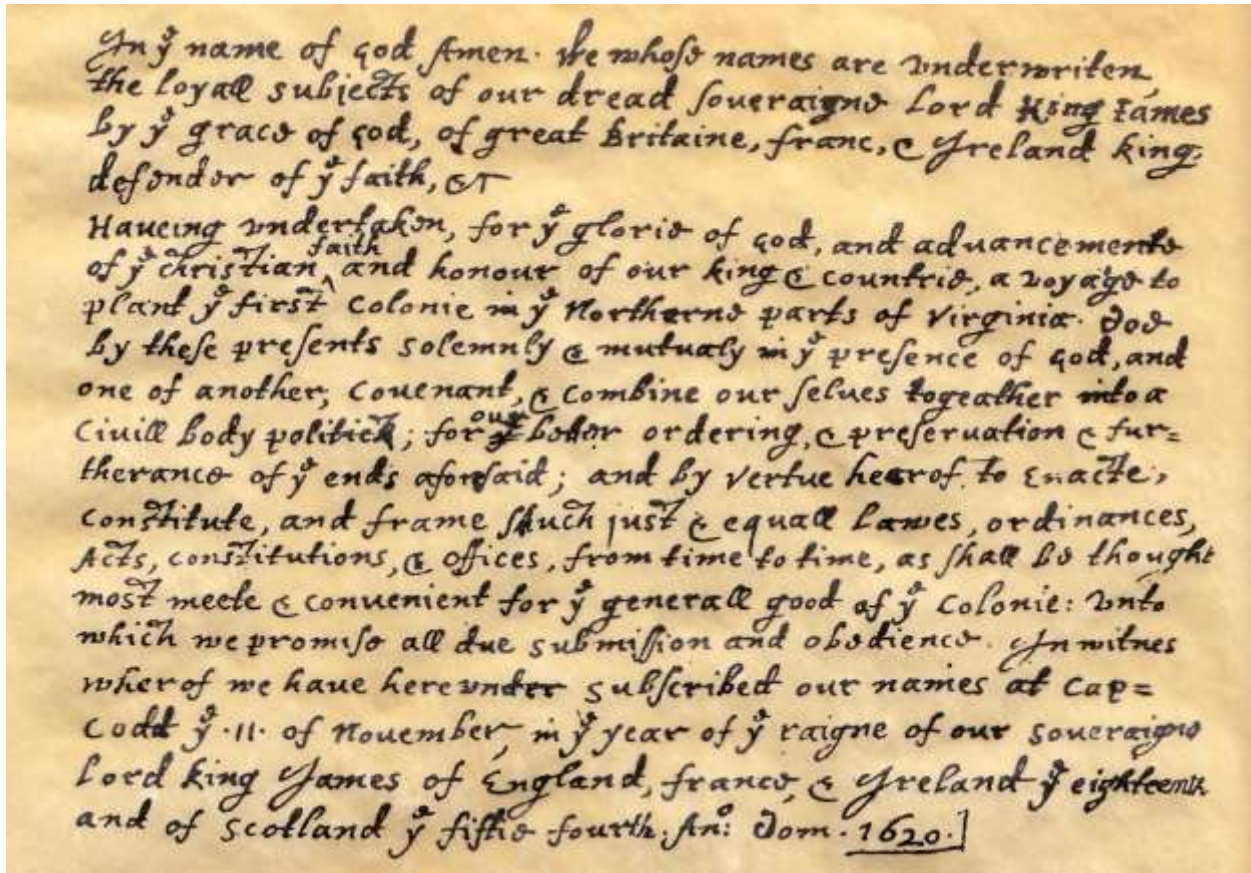 In yᵉ name of god Amen· We whose names are vnderwriten,
the loyall subjects of our dread soueraigne Lord King Iames
by yᵉ grace of god, of great Britaine, franc, & Ireland king,
defender of yᵉ faith, &c
Haueing vndertaken, for yᵉ glorie of god, and aduancemente
of yᵉ christian ^faith and honour of our king & countrie, a voyage to
plant yᵉ first colonie in yᵉ Northerne parts of Virginia· doe
by these presents solemnly & mutualy in yᵉ presence of god, and
one of another, couenant, & combine our selues togeather into a
Ciuill body politick; for our yᵉ better ordering, & preseruation & fur=
therance of yᵉ ends aforesaid; and by vertue hearof to Enacte,
constitute, and frame shuch just & equall Lawes, ordinances,
Acts, constitutions, & offices, from time to time, as shall be thought
most meete & conuenient for yᵉ generall good of yᵉ Colonie: vnto
which we promise all due submission and obedience· In witnes
wherof we haue herevnder subscribed our names at Cap=
Codd yᵉ ·11· of Nouember, in yᵉ year of yᵉ raigne of our soueraigne
Lord king James of England, france, & Ireland yᵉ eighteenth
and of scotland yᵉ fiftie fourth. Anº: dom· 1620·]